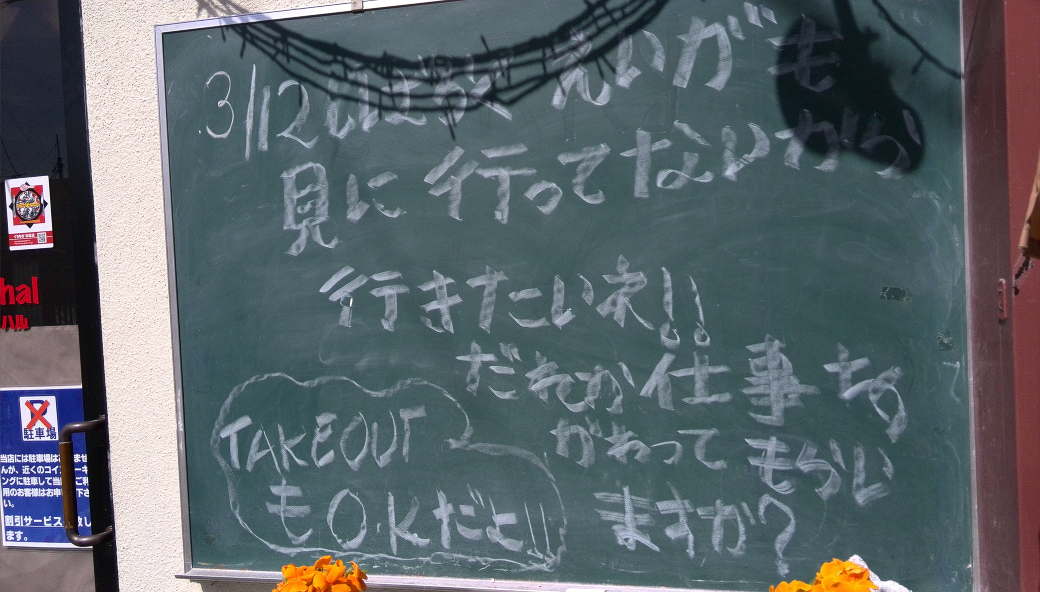 3/12 いはらえ えいがも
見に行ってないから
行きたいネ!!
だれか仕事を
かわってもらい
ますか?
TAKEOUT
もO.Kだよ!!
hal
ハル
駐車場
当店には駐車場はありませ
んが、近くのコインパーキ
ングに駐車して当店ご利
用のお客様はお申し下さ
い。
割引サービス致し
ます。